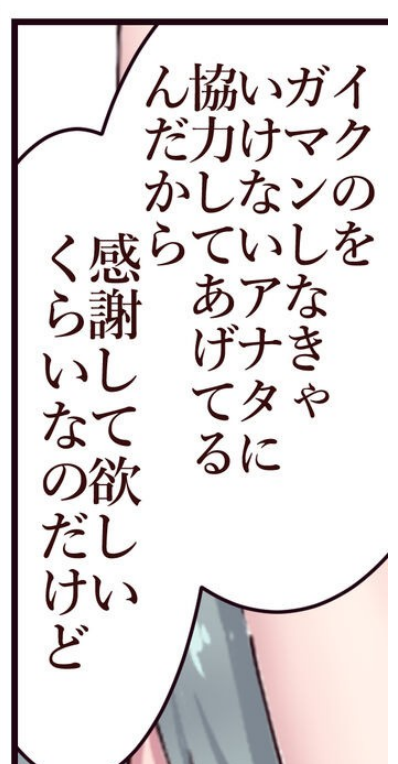 イクのを
ガマンしなきゃ
いけないアナタに
協力してあげてる
んだから
感謝して欲しい
くらいなのだけど